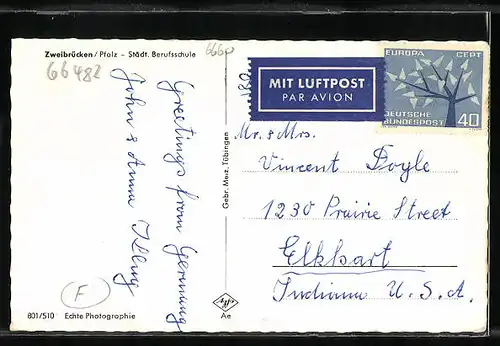 Zweibrücken/Pfalz – Städt. Berufsschule
66482
666p
Greetings from Germany
John & Anna
Gebr. Metz, Tübingen
MIT LUFTPOST
PAR AVION
EUROPA CEPT
DEUTSCHE
BUNDESPOST 40
Mr. & Mrs.
Vincent Foyle
1230 Prairie Street
Elkhart
Indiana U.S.A.
F
801/510 Echte Photographie
Agfa
Ae